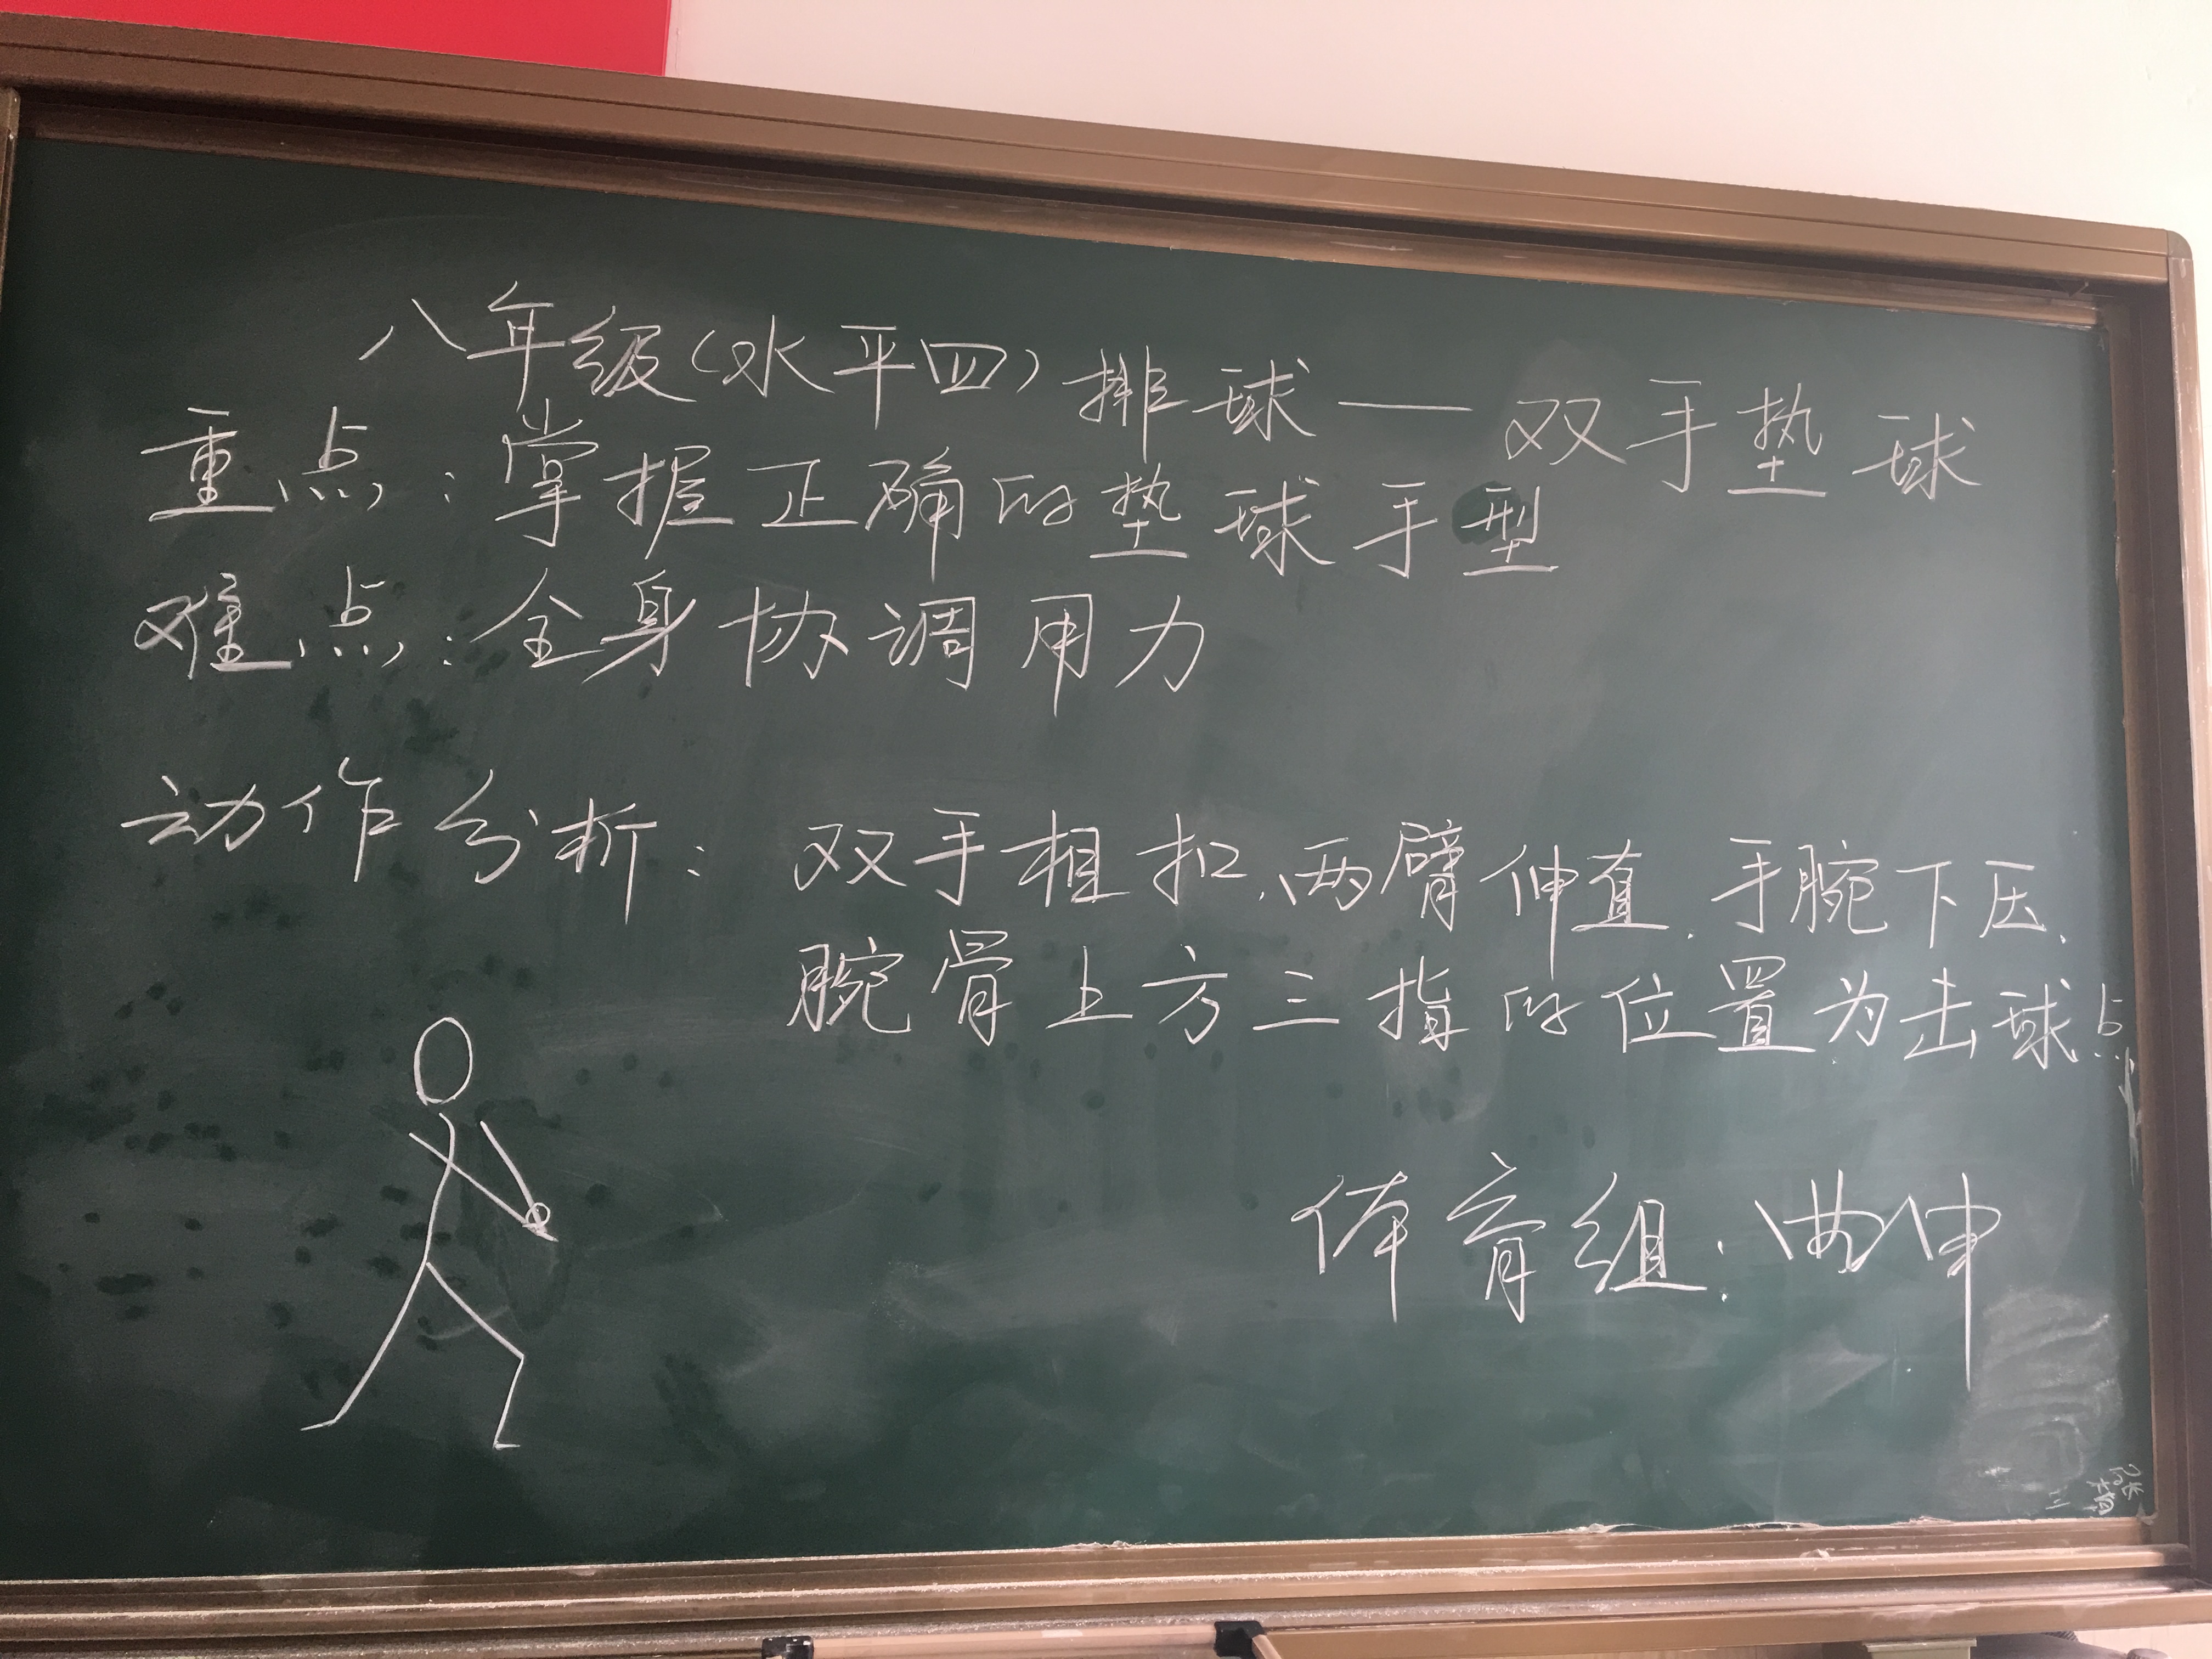 八年级(水平四)排球——双手垫球
重点:掌握正确的垫球手型
难点:全身协调用力
动作分析:双手相扣.两臂伸直.手腕下压.
腕骨上方三指的位置为击球点
体育组:曲申